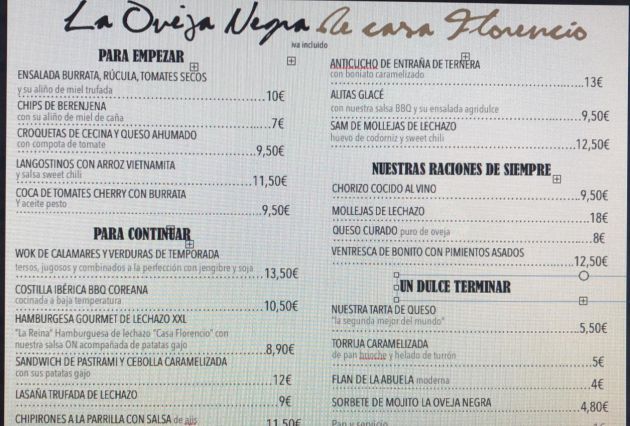 La Oveja Negra de casa Florencio
iva incluido
PARA EMPEZAR
ENSALADA BURRATA, RÚCULA, TOMATES SECOS
y su aliño de miel trufada 10€
CHIPS DE BERENJENA
con su aliño de miel de caña 7€
CROQUETAS DE CECINA Y QUESO AHUMADO
con compota de tomate 9,50€
LANGOSTINOS CON ARROZ VIETNAMITA
y salsa sweet chili 11,50€
COCA DE TOMATES CHERRY CON BURRATA
Y aceite pesto 9,50€
PARA CONTINUAR
WOK DE CALAMARES Y VERDURAS DE TEMPORADA
tersos, jugosos y combinados a la perfección con jengibre y soja 13,50€
COSTILLA IBÉRICA BBQ COREANA
cocinada a baja temperatura 10,50€
HAMBURGESA GOURMET DE LECHAZO XXL
"La Reina" Hamburguesa de lechazo "Casa Florencio" con
nuestra salsa ON acompañada de patatas gajo 8,90€
SANDWICH DE PASTRAMI Y CEBOLLA CARAMELIZADA
con sus patatas gajo 12€
LASAÑA TRUFADA DE LECHAZO 9€
CHIPIRONES A LA PARRILLA CON SALSA de ajis 11,50€
ANTICUCHO DE ENTRAÑA DE TERNERA
con boniato caramelizado 13€
ALITAS GLACÉ
con nuestra salsa BBQ y su ensalada agridulce 9,50€
SAM DE MOLLEJAS DE LECHAZO
huevo de codorniz y sweet chili 12,50€
NUESTRAS RACIONES DE SIEMPRE
CHORIZO COCIDO AL VINO 9,50€
MOLLEJAS DE LECHAZO 18€
QUESO CURADO puro de oveja 8€
VENTRESCA DE BONITO CON PIMIENTOS ASADOS 12,50€
UN DULCE TERMINAR
NUESTRA TARTA DE QUESO
"la segunda mejor del mundo" 5,50€
TORRIJA CARAMELIZADA
de pan brioche y helado de turrón 5€
FLAN DE LA ABUELA moderna 4€
SORBETE DE MOJITO LA OVEJA NEGRA 4,80€
Pan y servicio 1€